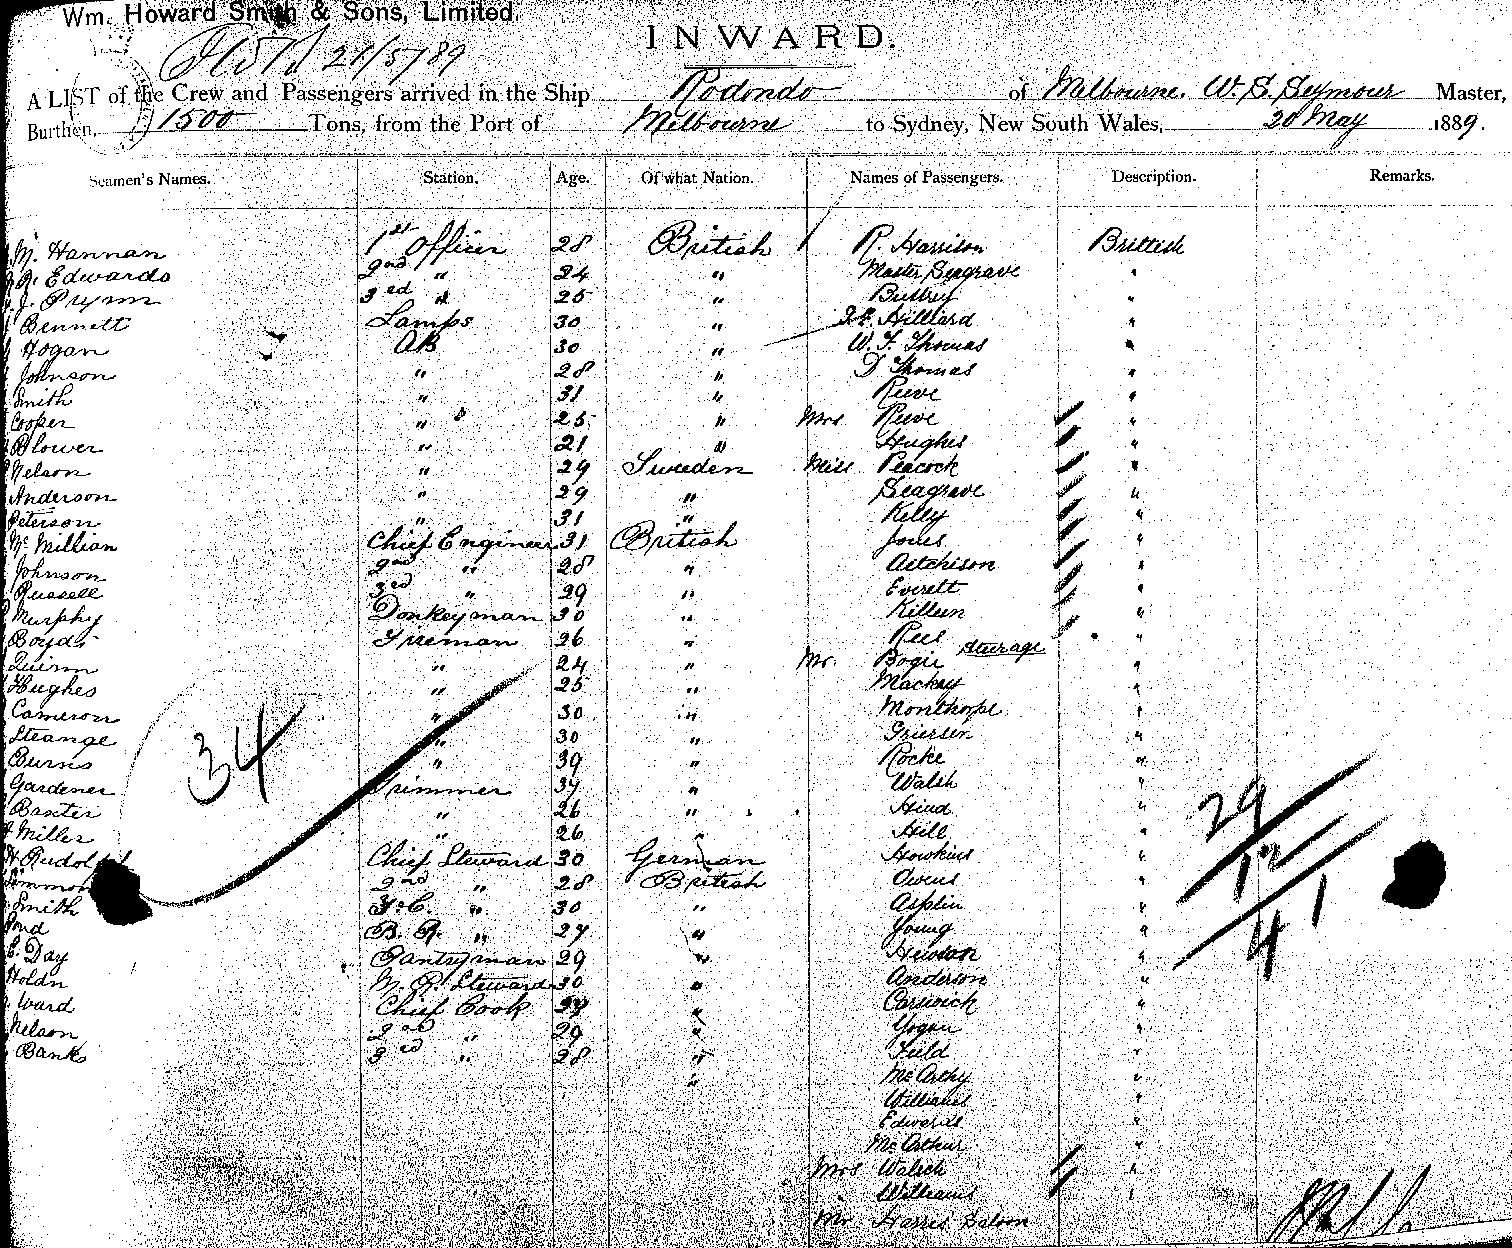 Wm. Howard Smith & Sons, Limited
INWARD.
21/5/89
A LIST of the Crew and Passengers arrived in the Ship Rodondo of Melbourne. W. S. Seymour Master,
Burthen, 1500 Tons, from the Port of Melbourne to Sydney, New South Wales, 20 May 1889.
Seamen's Names. Station. Age. Of what Nation. Names of Passengers. Description. Remarks.
M. Hannan 1st Officer 28 British R. Harrison British
Edwards 2nd " 24 " Master Seagrave "
J. Prynn 3rd " 25 " Buttry "
Bennett Lamps 30 " Hilliard "
Hogan AB 30 " W. F. Thomas "
Johnson " 28 " D Thomas "
Smith " 31 " Reeve "
Cooper " 25 " Mrs Reeve "
Blower " 21 " Hughes "
Nelson " 29 Sweden Miss Peacock "
Anderson " 29 " Seagrave "
Peterson " 31 " Kelly "
Mc Millian Chief Engineer 31 British Jones "
Johnson 2nd " 28 " Aitchison "
Russell 3rd " 29 " Everett "
Murphy Donkeyman 30 " Killeen "
Boyds Fireman 26 " Rees "
Steerage
Quinn " 24 " Mr. Bogie "
Hughes " 25 " Mackay "
Cameron " 30 " Monthorpe "
Strange " 30 " Grierson "
Burns " 39 " Rocke "
Gardener Trimmer 37 " Walsh "
34
Baxter " 26 " Hind "
Miller " 26 " Hill "
29
H. Rudolph Chief Steward 30 German Howkins "
12
Simmon 2nd " 28 British Owens "
41
Smith F.C. " 30 " Asplin "
B. R. " 27 " Young "
Day Pantryman 29 " Hewson "
Holdn M. R. Steward 30 " Anderson "
Ward Chief Cook " Carswick "
Nelson 2nd " 29 " Yogan "
Banks 3rd " 28 " Field "
" McArthy "
Williams "
Edwards "
McArthur "
Mrs Walsh "
Williams "
Mr Harris Saloon